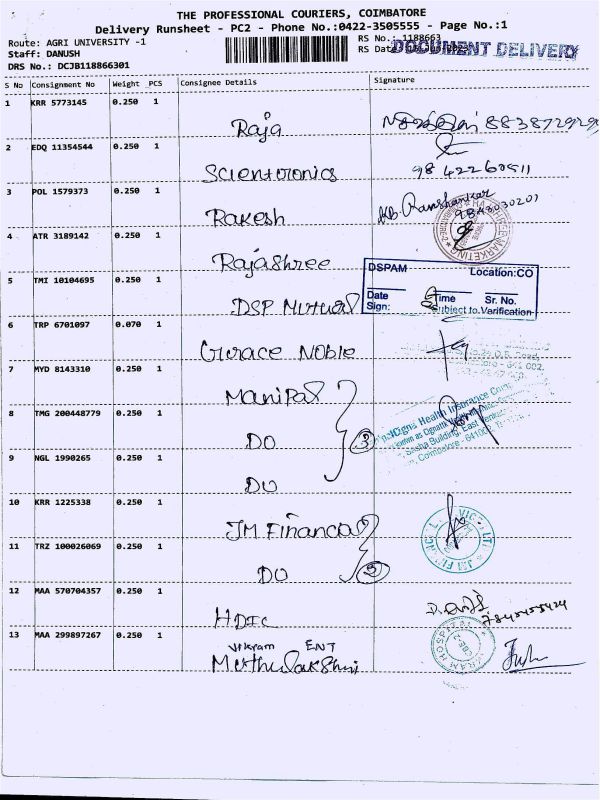 THE PROFESSIONAL COURIERS, COIMBATORE
Delivery Runsheet - PC2 - Phone No.:0422-3505555 - Page No.:1
Route: AGRI UNIVERSITY -1
RS No.: 1188663
Staff: DANUSH
RS Dat
DOCUMENT DELIVERY
DRS No.: DCJB118866301
S No Consignment No Weight PCS Consignee Details Signature
1 KRR 5773145 0.250 1 Raja 883872929
2 EDQ 11354544 0.250 1 Scientronics 9842260911
3 POL 1579373 0.250 1 Rakesh 9843030201
4 ATR 3189142 0.250 1 Rajashree
DSPAM Location:CO
5 TMI 10104695 0.250 1 DSP Mutual
Date Time Sr. No.
Sign: Subject to Verification
6 TRP 6701097 0.070 1 Grace Noble
7 MYD 8143310 0.250 1 Manipal
Health Insurance
8 TMG 200448779 0.250 1 DO 3
Building, East
Coimbatore
9 NGL 1990265 0.250 1 DO
10 KRR 1225338 0.250 1 JM Financial
11 TRZ 100026069 0.250 1 DO 2
12 MAA 570704357 0.250 1 HDFC
13 MAA 299897267 0.250 1 Vikram ENT
Muthulakshmi